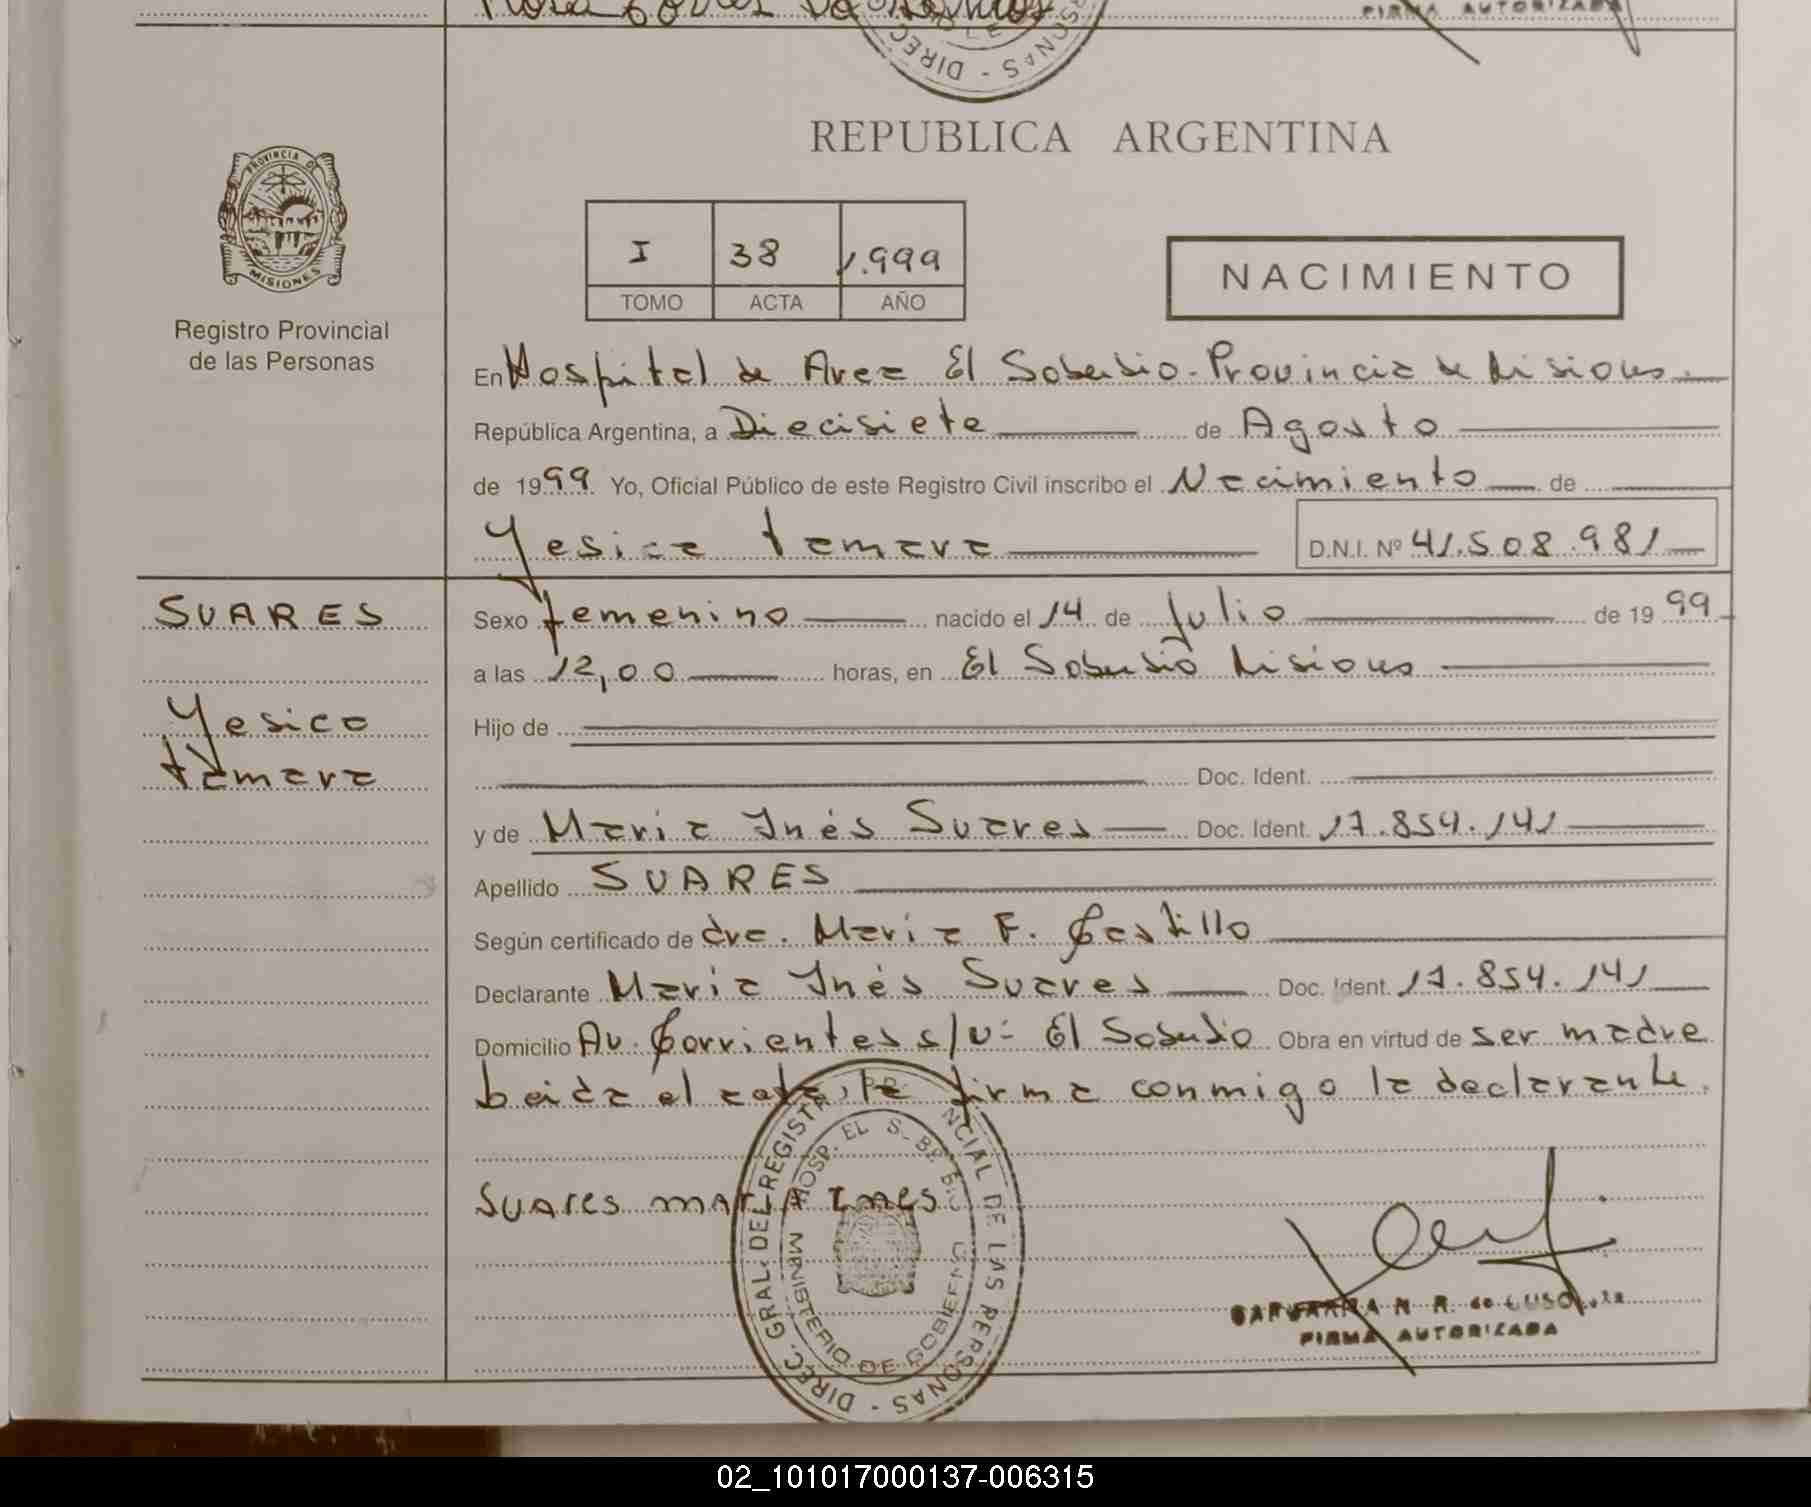 FIRMA AUTORIZADA
DIRECC
SONAS - DIREC
REPUBLICA ARGENTINA
PROVINCIA D
MISIONES
Registro Provincial
de las Personas
I 38 1.999
TOMO ACTA AÑO
NACIMIENTO
En Hospital de Area El Soberbio - Provincia de Misiones
República Argentina, a Diecisiete de Agosto
de 1999 Yo, Oficial Público de este Registro Civil inscribo el Nacimiento de
Yesica tamara D.N.I. Nº 41.508.981
SUARES
Yesica
tamara
Sexo femenino nacido el 14 de Julio de 1999
a las 12,00 horas, en El Soberbio Misiones
Hijo de
Doc. Ident.
y de Maria Inés Suares Doc. Ident. 17.854.141
Apellido SUARES
Según certificado de dra. Maria F. Castillo
Declarante Maria Inés Suares Doc. Ident. 17.854.141
Domicilio Av. Corrientes s/n - El Soberbio Obra en virtud de ser madre
leida el acta, la firma conmigo la declarante.
Suares maria Ines
DIREC. GRAL. DEL REGISTRO NCIAL DE LAS PERSONAS
MINISTERIO DE GOBIERNO HOSP. EL SOBERBIO
FIRMA AUTORIZADA
02_101017000137-006315